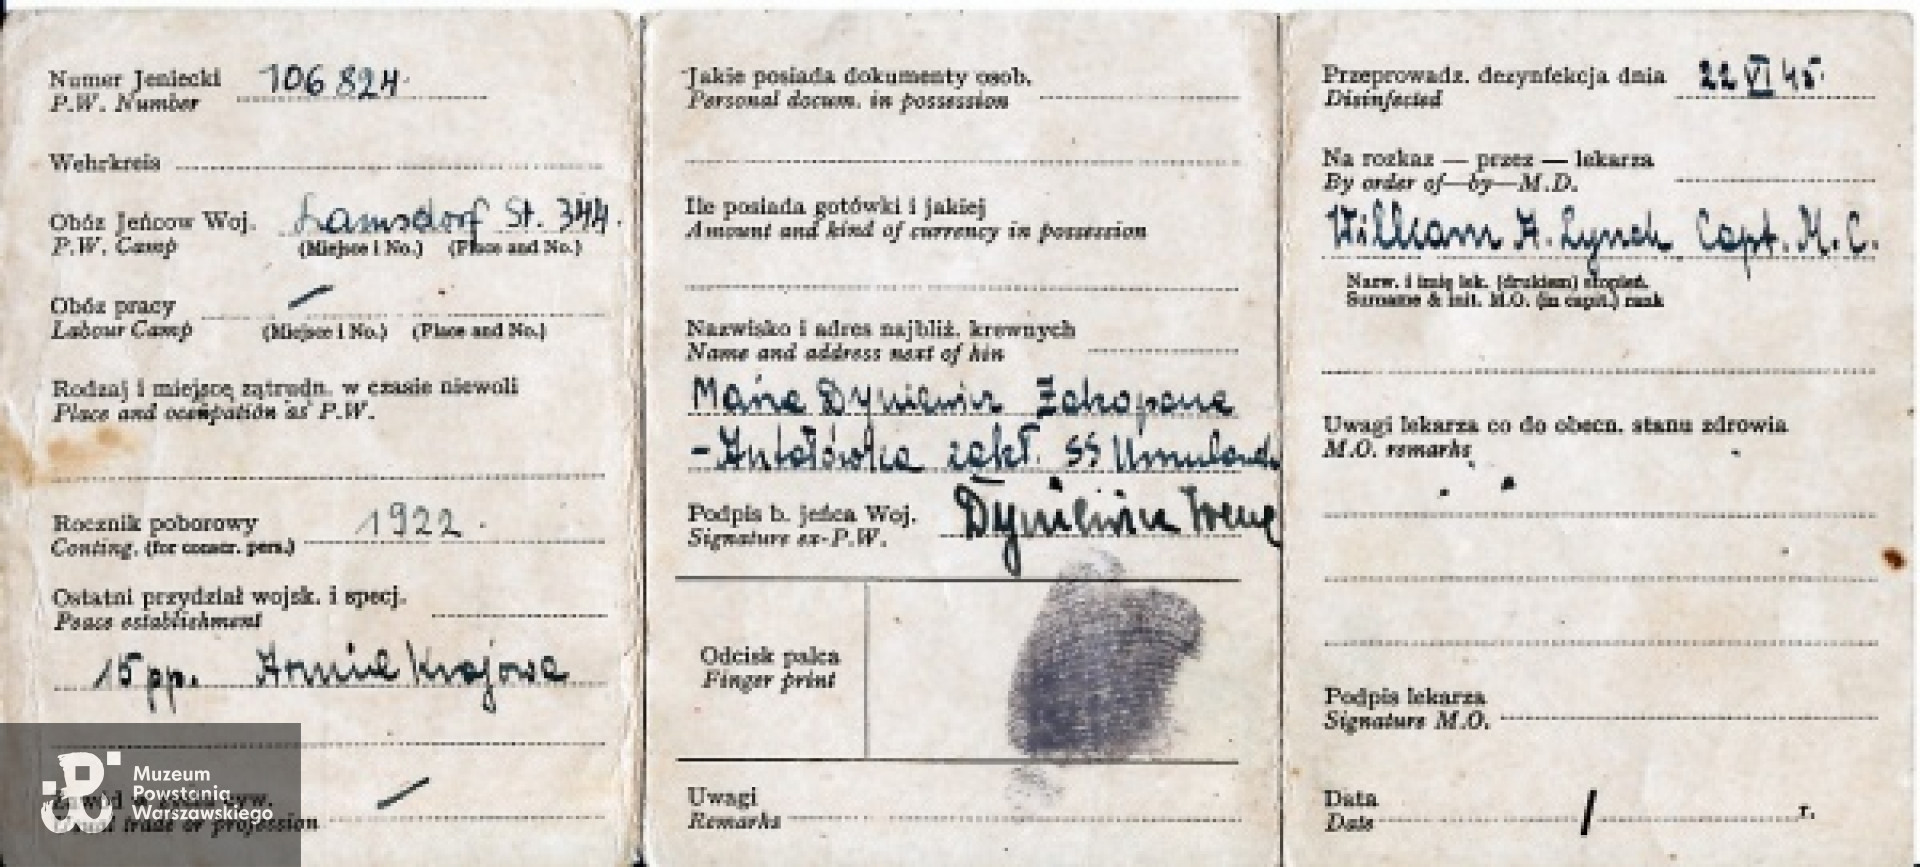 Numer Jeniecki 106 824.
P.W. Number
Wehrkreis
Obóz Jeńcow Woj. Lamsdorf St. 344.
P.W. Camp (Miejsce i No.) (Place and No.)
Obóz pracy
Labour Camp (Miejsce i No.) (Place and No.)
Rodzaj i miejsce zatrudn. w czasie niewoli
Place and occupation as P.W.
Rocznik poborowy 1922.
Conting. (for constr. pers.)
Ostatni przydział wojsk. i specj.
Peace establishment
15 pp. Armia Krajowa
Zawód w życiu cyw.
Usual trade or profession
Muzeum
Powstania
Warszawskiego
Jakie posiada dokumenty osob.
Personal docum. in possession
Ile posiada gotówki i jakiej
Amount and kind of currency in possession
Nazwisko i adres najbliż. krewnych
Name and address next of kin
Maria Dyniewicz Zakopane
-Antałówka zakł. SS
Podpis b. jeńca Woj. Dyniewicz Irena
Signature ex-P.W.
Odcisk palca
Finger print
Uwagi
Remarks
Przeprowadz. dezynfekcja dnia 22 VI 45.
Disinfected
Na rozkaz — przez — lekarza
By order of—by—M.D.
William A. Lynch Capt. M.C.
Nazw. i imię lek. (drukiem) stopień.
Surname & init. M.O. (in capit.) rank
Uwagi lekarza co do obecn. stanu zdrowia
M.O. remarks
Podpis lekarza
Signature M.O.
Data
Date / r.